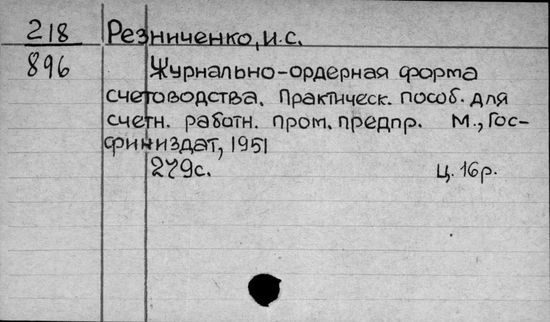 218 Резниченко, И.С.
896 Журнально-ордерная форма
счетоводства. Практическ. пособ. для
счетн. работн. пром. предпр. М., Гос-
финиздат, 1951
279с. Ц. 16р.